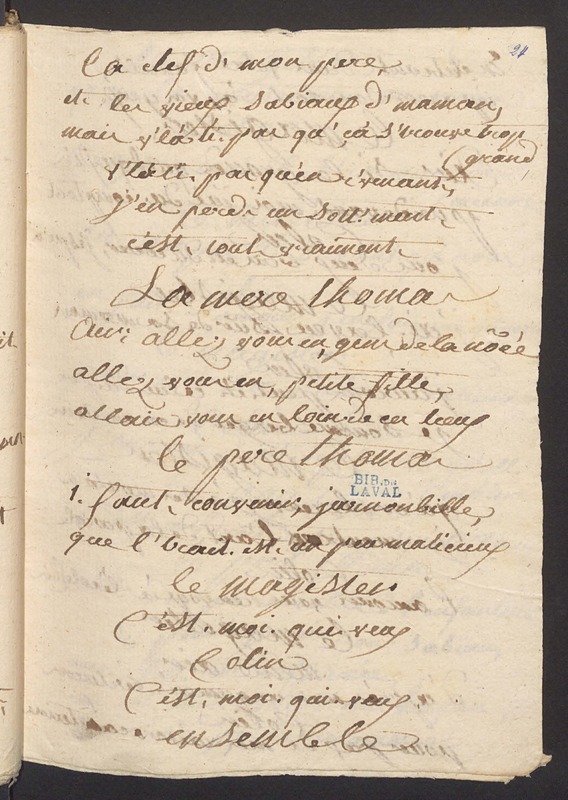 24
La clef d'mon pere
et les vieux sabiaux d'maman,
mais v'la ti pas qu'ça s'trouve trop
grand,
v'la ti pas qu'en r'venant,
j'en perds un sott'ment
c'est, tout vraiment
La mere thomas
Air: allez vous en, gens de la nôce
allez vous en, petite fille,
allais vous en loin de ces lieux
le pere thomas
BIB. DE
LAVAL
1. faut, convenir
que l' est un peu malicieux
le magister
C'est, moi qui veux
Colin
C'est, moi qui veux
ensemble